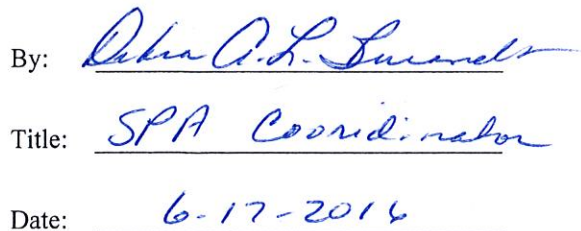 By: Debra A. L.
Title: SPA Cooridinator
Date: 6-17-2016